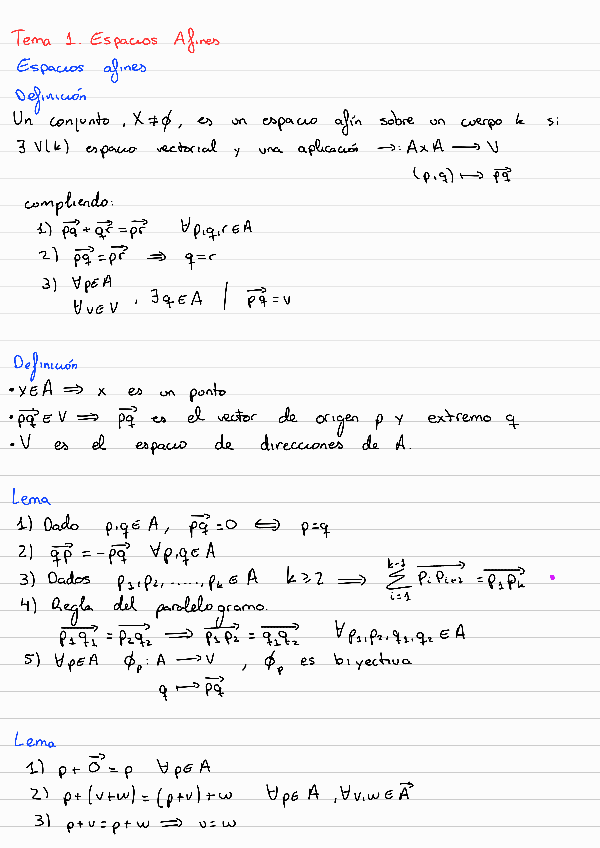 Tema 1. Espacios Afines
Espacios afines
Definición
Un conjunto, X ≠ ∅, es un espacio afín sobre un cuerpo k si
∃ V(k) espacio vectorial y una aplicación →: A x A ⟶ V
(p,q) ⟼ \overrightarrow{pq}
cumpliendo:
1) \overrightarrow{pq} + \overrightarrow{qr} = \overrightarrow{pr} ∀p,q,r ∈ A
2) \overrightarrow{pq} = \overrightarrow{pr} ⟹ q=r
3) ∀p∈A
∀v∈V , ∃q∈A | \overrightarrow{pq} = v
Definición
• x∈A ⟹ x es un punto
• \overrightarrow{pq} ∈ V ⟹ \overrightarrow{pq} es el vector de origen p y extremo q
• V es el espacio de direcciones de A.
Lema
1) Dado p,q∈A, \overrightarrow{pq} = 0 ⟺ p=q
2) \overrightarrow{qp} = -\overrightarrow{pq} ∀p,q∈A
3) Dados p_1, p_2, ....., p_k ∈ A k ≥ 2 ⟹ \sum_{i=1}^{k-1} \overrightarrow{p_i p_{i+1}} = \overrightarrow{p_1 p_k}
4) Regla del paralelogramo.
\overrightarrow{p_1 q_1} = \overrightarrow{p_2 q_2} ⟹ \overrightarrow{p_1 p_2} = \overrightarrow{q_1 q_2} ∀p_1, p_2, q_1, q_2 ∈ A
5) ∀p∈A ϕ_p : A ⟶ V , ϕ_p es biyectiva
q ⟼ \overrightarrow{pq}
Lema
1) p + \vec{0} = p ∀p∈A
2) p+(v+w) = (p+v)+w ∀p∈A, ∀v,w∈\vec{A}
3) p+v = p+w ⟹ v=w